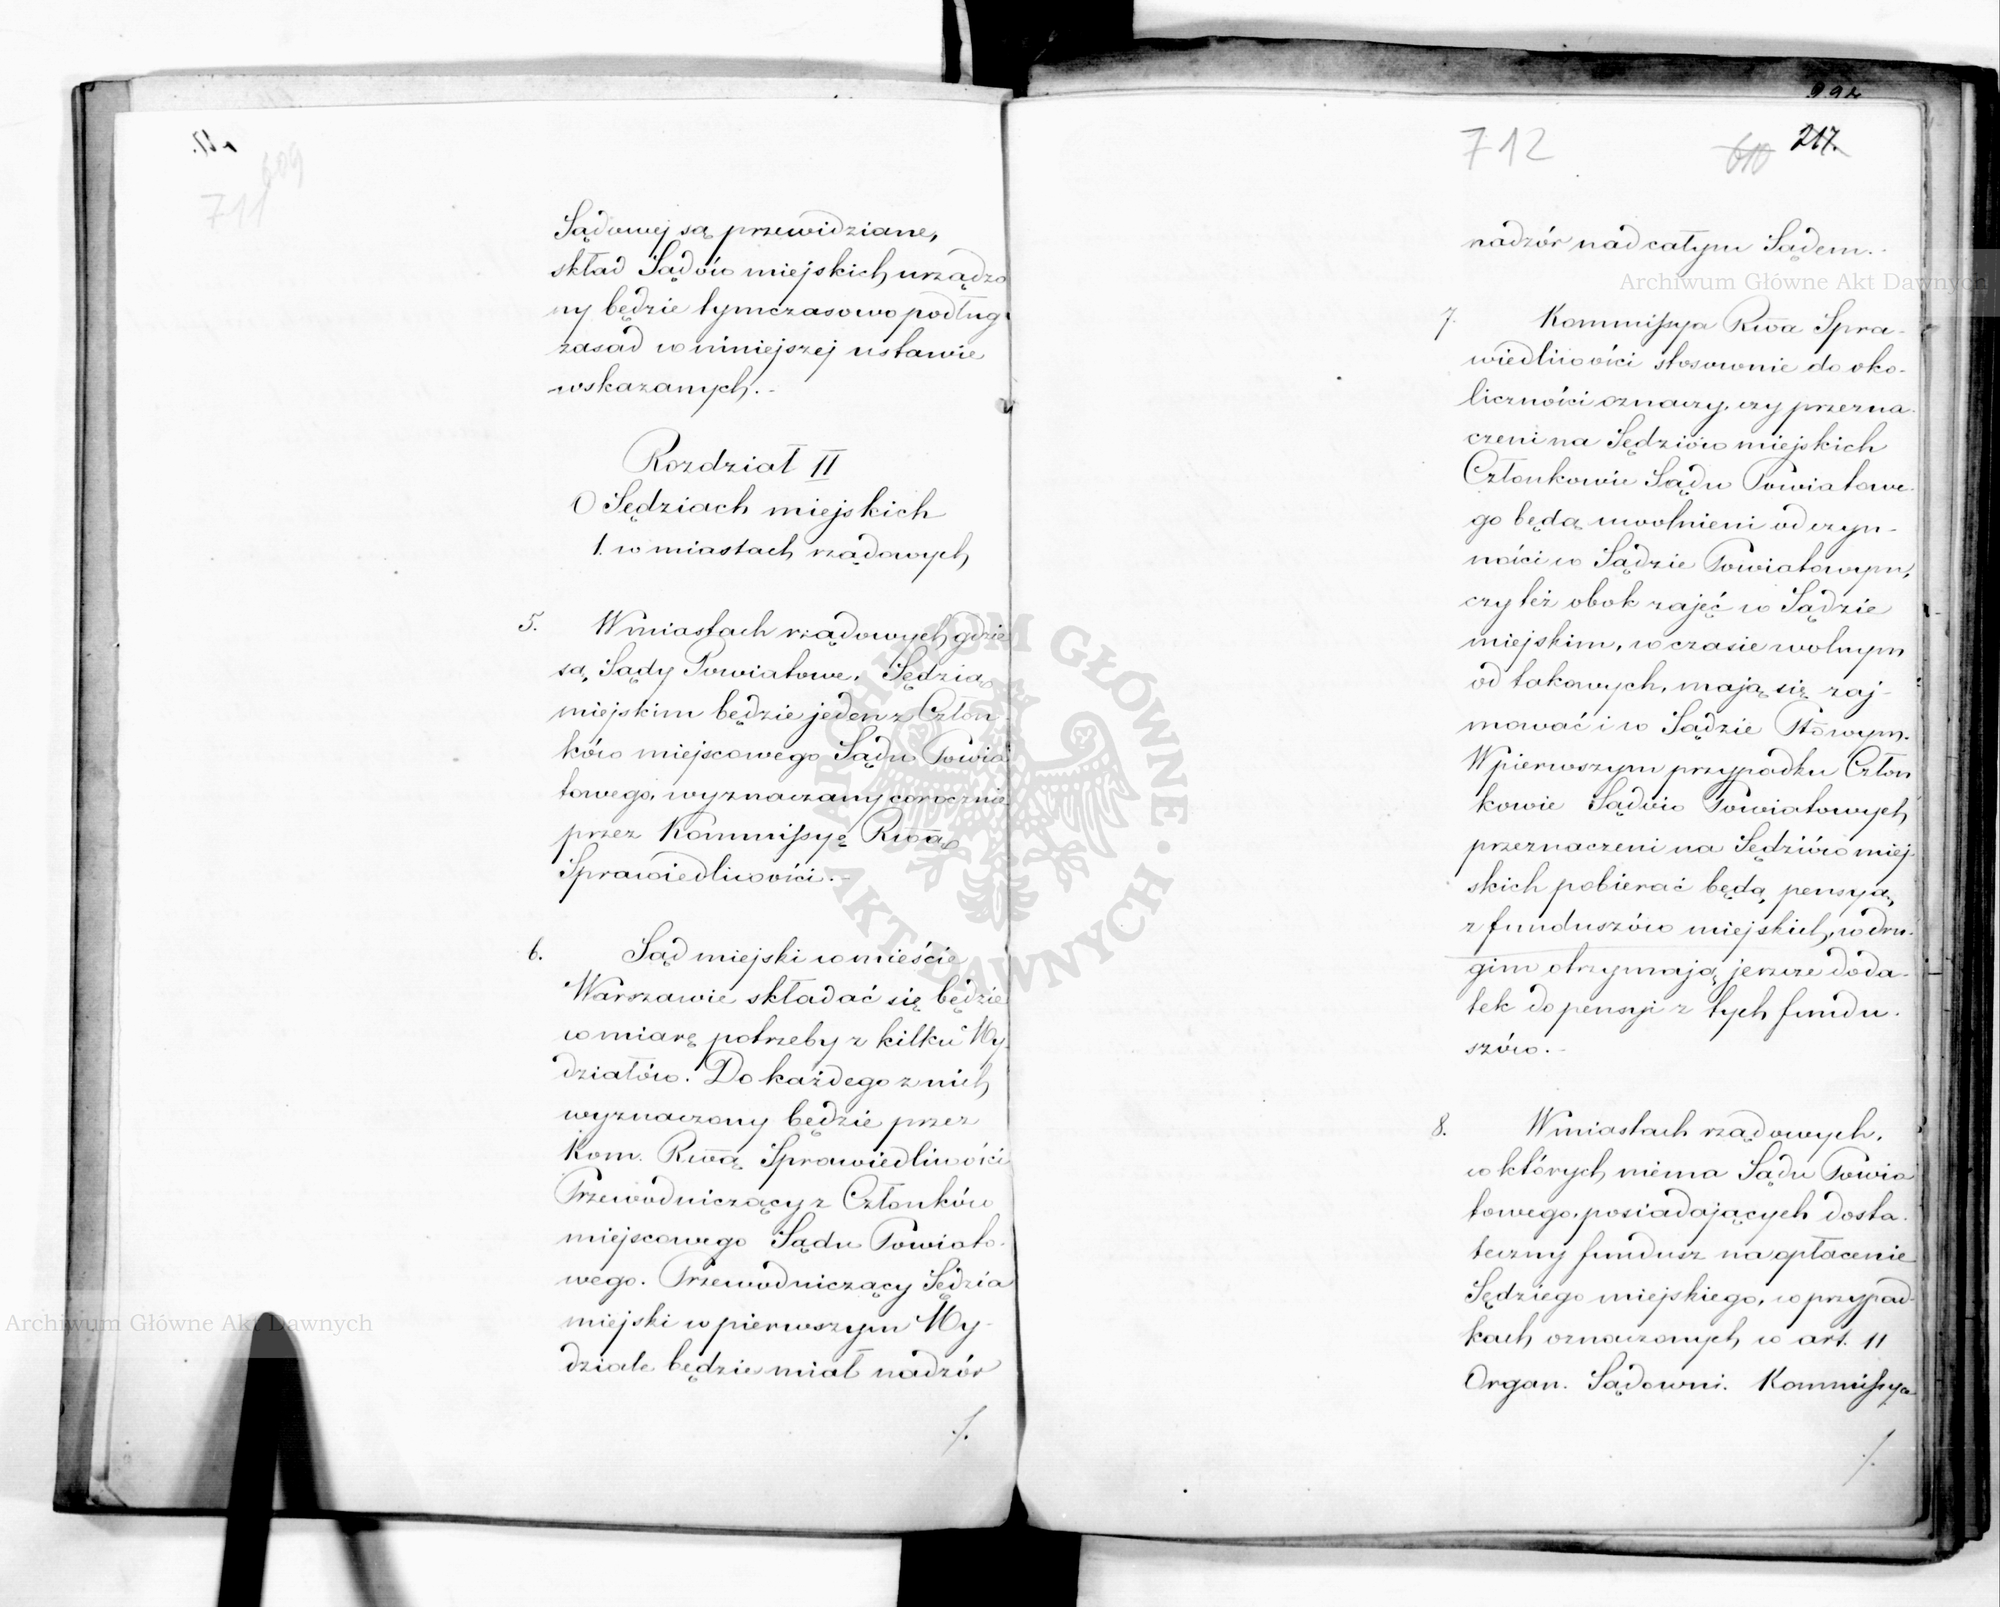 609
711
Sądowej są przewidziane,
skład Sądów miejskich urządzo
ny będzie tymczasowo podług
zasad w niniejszej ustawie
wskazanych.-
Rozdział II
O Sędziach miejskich
1. w miastach rządowych
5. W miastach rządowych gdzie
są Sądy Powiatowe, Sędzią
miejskim będzie jeden z Człon
ków miejscowego Sądu Powia
towego, wyznaczany corocznie
przez Kommissyę Rwą
Sprawiedliwości.-
6. Sąd miejski w mieście
Warszawie składać się będzie
w miarę potrzeby z kilku Wy-
działów. Do każdego z nich
wyznaczony będzie przez
Kom. Rwą Sprawiedliwości
Przewodniczący z Członków
miejscowego Sądu Powiato-
wego. Przewodniczący Sędzia
miejski w pierwszym Wy-
dziale będzie miał nadzór
./.
712
610
217.
nadzór nad całym Sądem.-
7. Kommissya Rwa Spra-
wiedliwości stosownie do oko-
liczności oznaczy, czy przezna-
czeni na Sędziów miejskich
Członkowie Sądu Powiatowe-
go będą uwolnieni od czyn-
ności w Sądzie Powiatowym,
czy też obok zajęć w Sądzie
miejskim, w czasie wolnym
od takowych, mają się zaj-
mować i w Sądzie Ptowym.
W pierwszym przypadku Człon
kowie Sądów Powiatowych
przeznaczeni na Sędziów miej-
skich pobierać będą pensyą
z funduszów miejskich, w dru-
gim otrzymają jeszcze doda-
tek do pensyi z tych fundu-
szów.-
8. W miastach rządowych,
w których niema Sądu Powia
towego, posiadających dosta-
teczny fundusz na opłacenie
Sędziego miejskiego, w przypad-
kach oznaczonych w art. 11
Organ. Sądowni. Kommissya
./.
Archiwum Główne Akt Dawnych
Archiwum Główne Akt Dawnych
ARCHIWUM GŁÓWNE • AKT DAWNYCH •